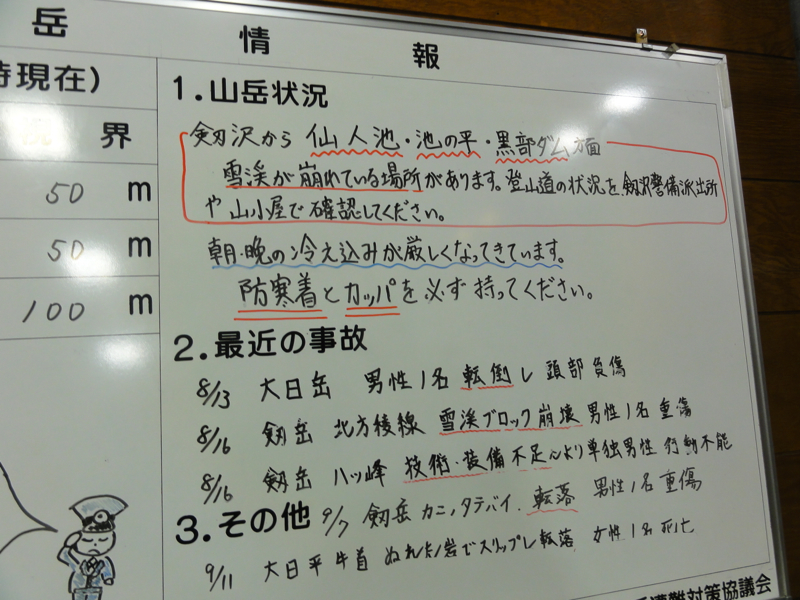 岳情報
時現在)
界
50 m
50 m
100 m
1.山岳状況
剱沢から 仙人池・池の平・黒部ダム方面
雪渓が崩れている場所があります。登山道の状況を剱沢警備派出所
や山小屋で確認してください。
朝・晩の冷え込みが厳しくなってきています。
防寒着とカッパを必ず持ってください。
2.最近の事故
8/13 大日岳 男性1名 転倒し 頭部負傷
8/16 剱岳 北方稜線 雪渓ブロック崩壊 男性1名 重傷
8/16 剱岳 八ッ峰 技術・装備不足により単独男性 行動不能
3.その他 9/7 剱岳 カニノタテバイ. 転落 男性1名重傷
9/11 大日平 牛首 ぬれた岩でスリップし転落 女性1名 死亡
遭難対策協議会